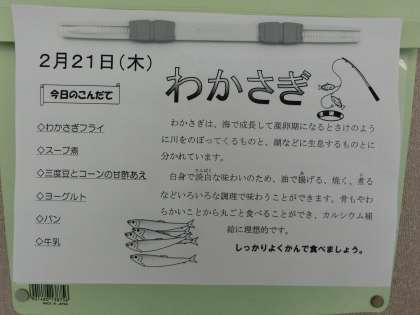 2月21日(木)
わかさぎ
今日のこんだて
◇わかさぎフライ
◇スープ煮
◇三度豆とコーンの甘酢あえ
◇ヨーグルト
◇パン
◇牛乳
わかさぎは、海で成長して産卵期になるとさけのよう
に川をのぼってくるものと、湖などに生息するものとに
分かれています。
白身で淡白な味わいのため、油で揚げる、焼く、煮る
などいろいろな調理で味わうことができます。骨もやわ
らかいことから丸ごと食べることができ、カルシウム補
給に理想的です。
しっかりよくかんで食べましょう。